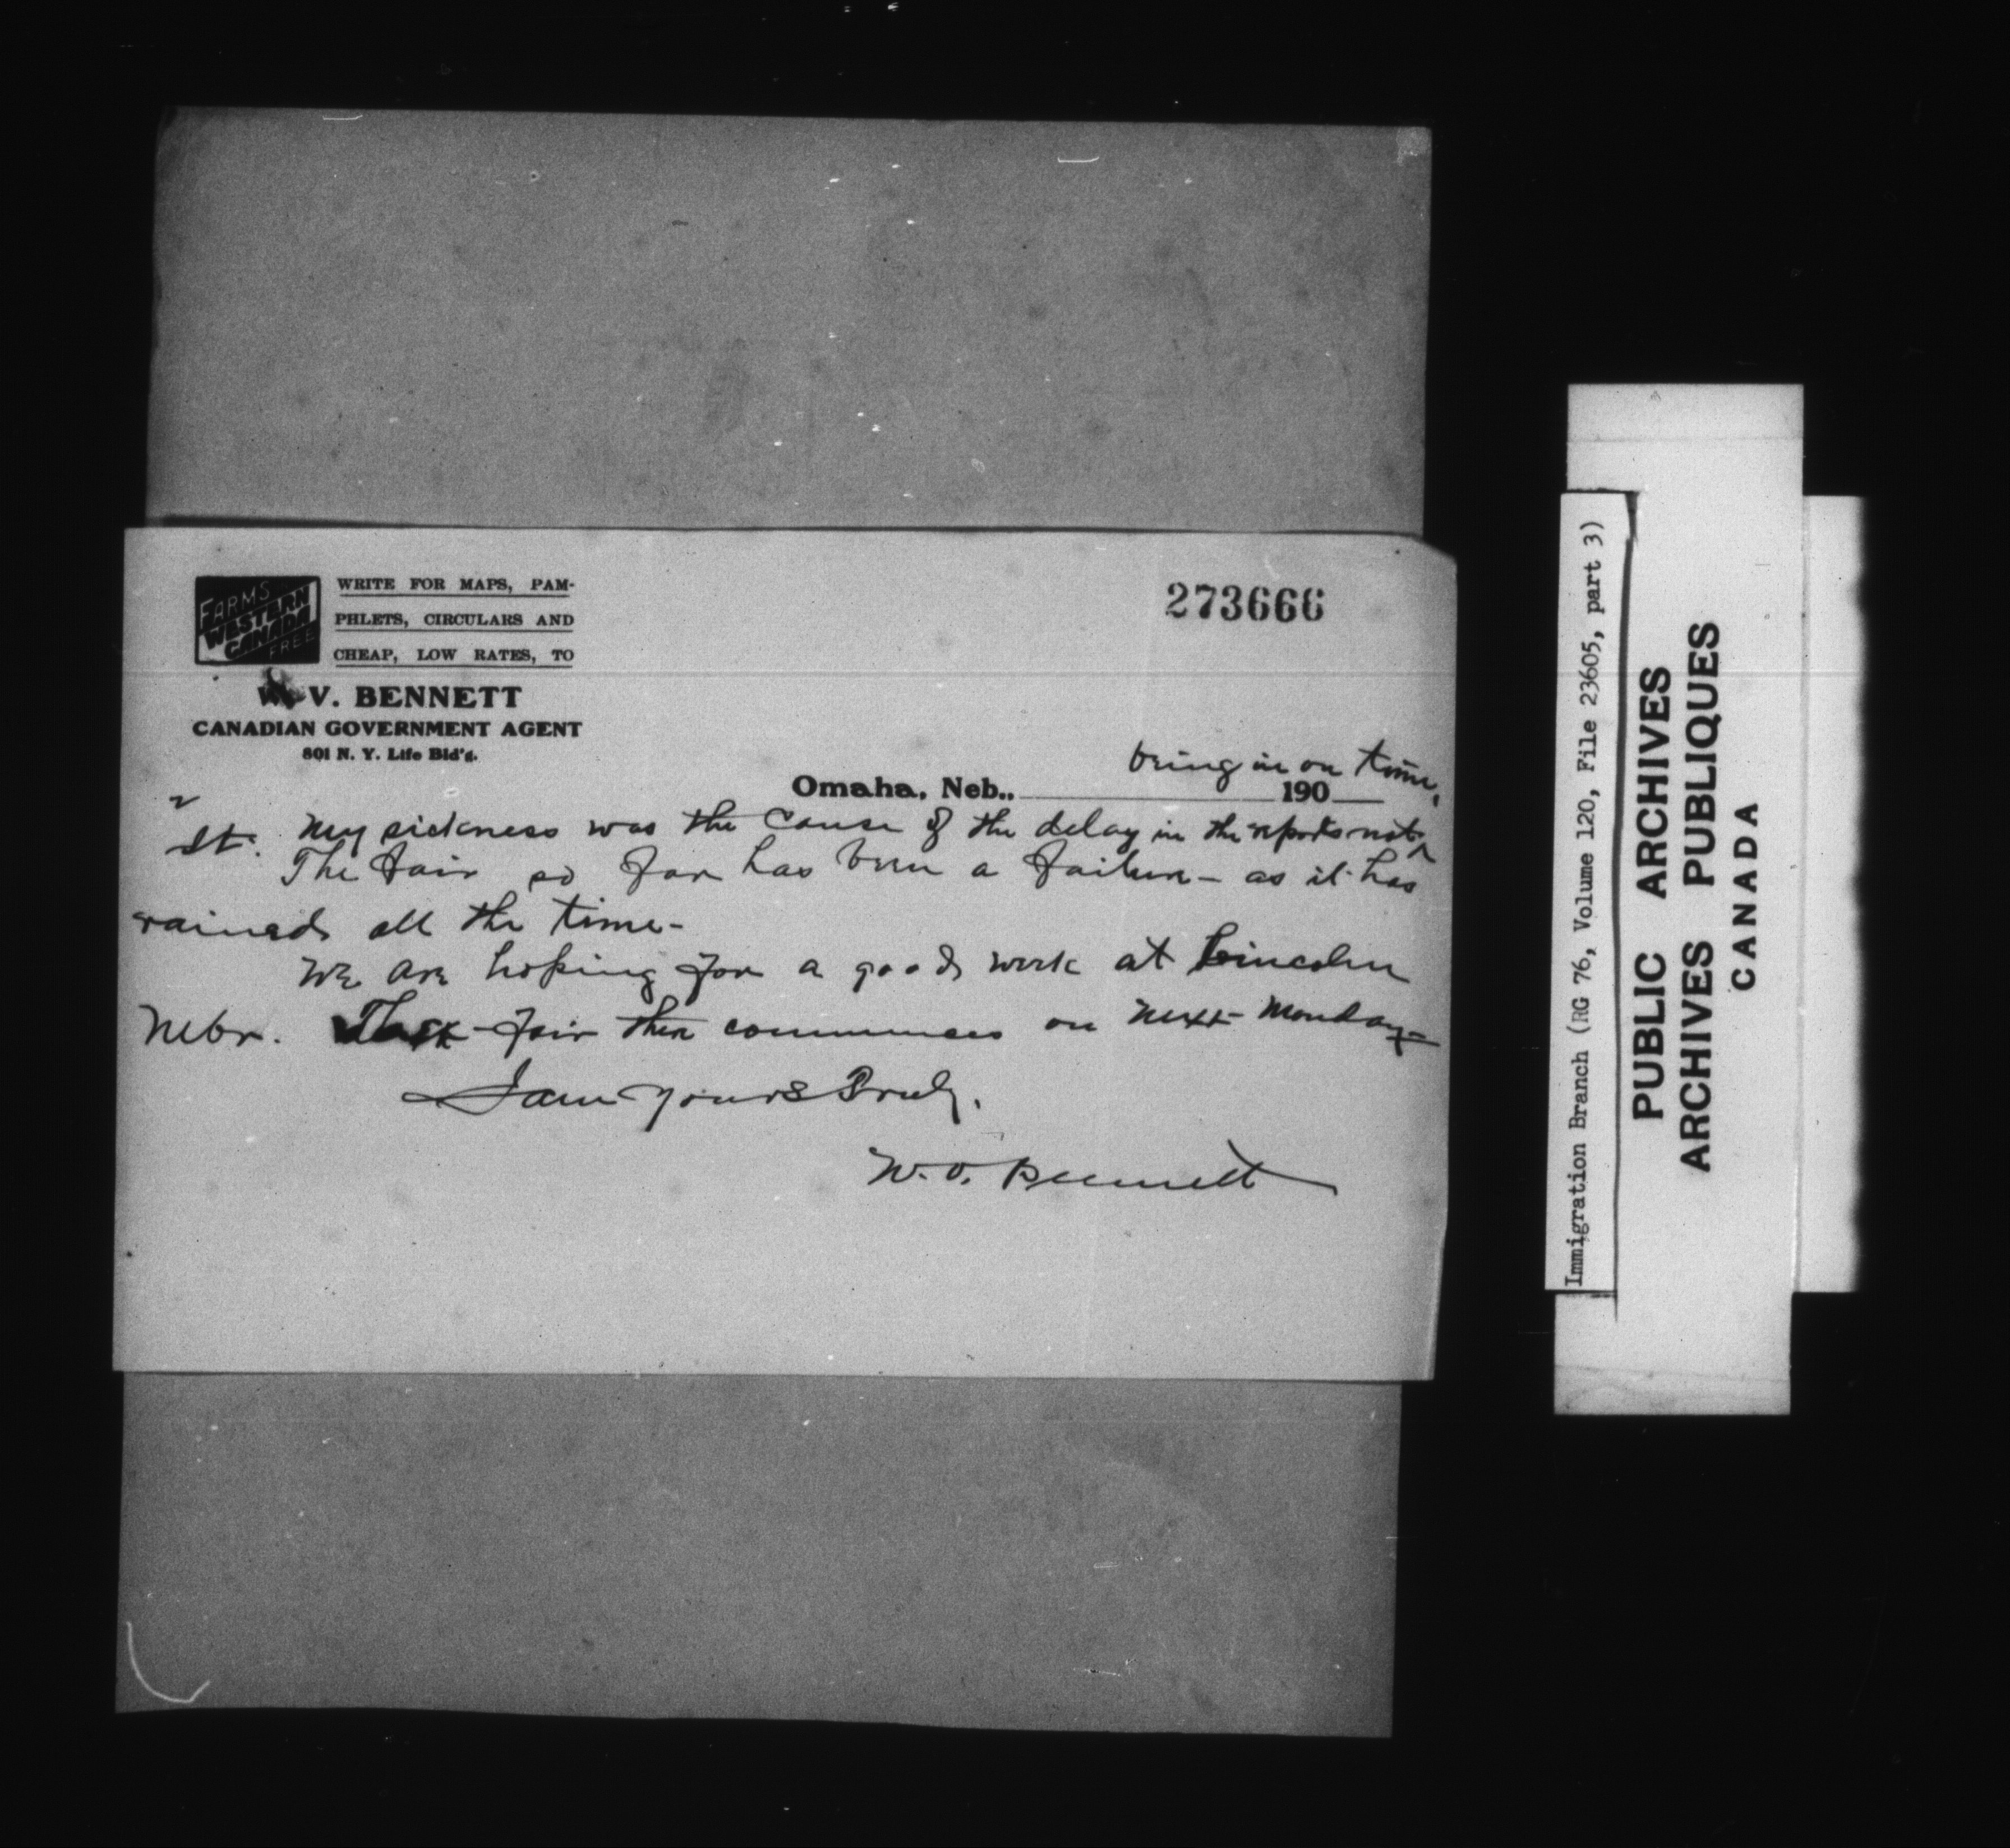 FARMS
WESTERN
CANADA
FREE
WRITE FOR MAPS, PAM-
PHLETS, CIRCULARS AND
CHEAP, LOW RATES, TO
273666
W. V. BENNETT
CANADIAN GOVERNMENT AGENT
801 N. Y. Life Bld'g.
Omaha, Neb., 190
bring in on time.
2
It. My sickness was the cause of the delay in the reports not ^
The fair so far has been a failure - as it has
rained all the time -
We are hoping for a good week at Lincoln
Nebr. The fair there commences on next Monday -
I am yours Truly,
W. V. Bennett
Immigration Branch (RG 76, Volume 120, File 23605, part 3)
PUBLIC ARCHIVES
ARCHIVES PUBLIQUES
CANADA